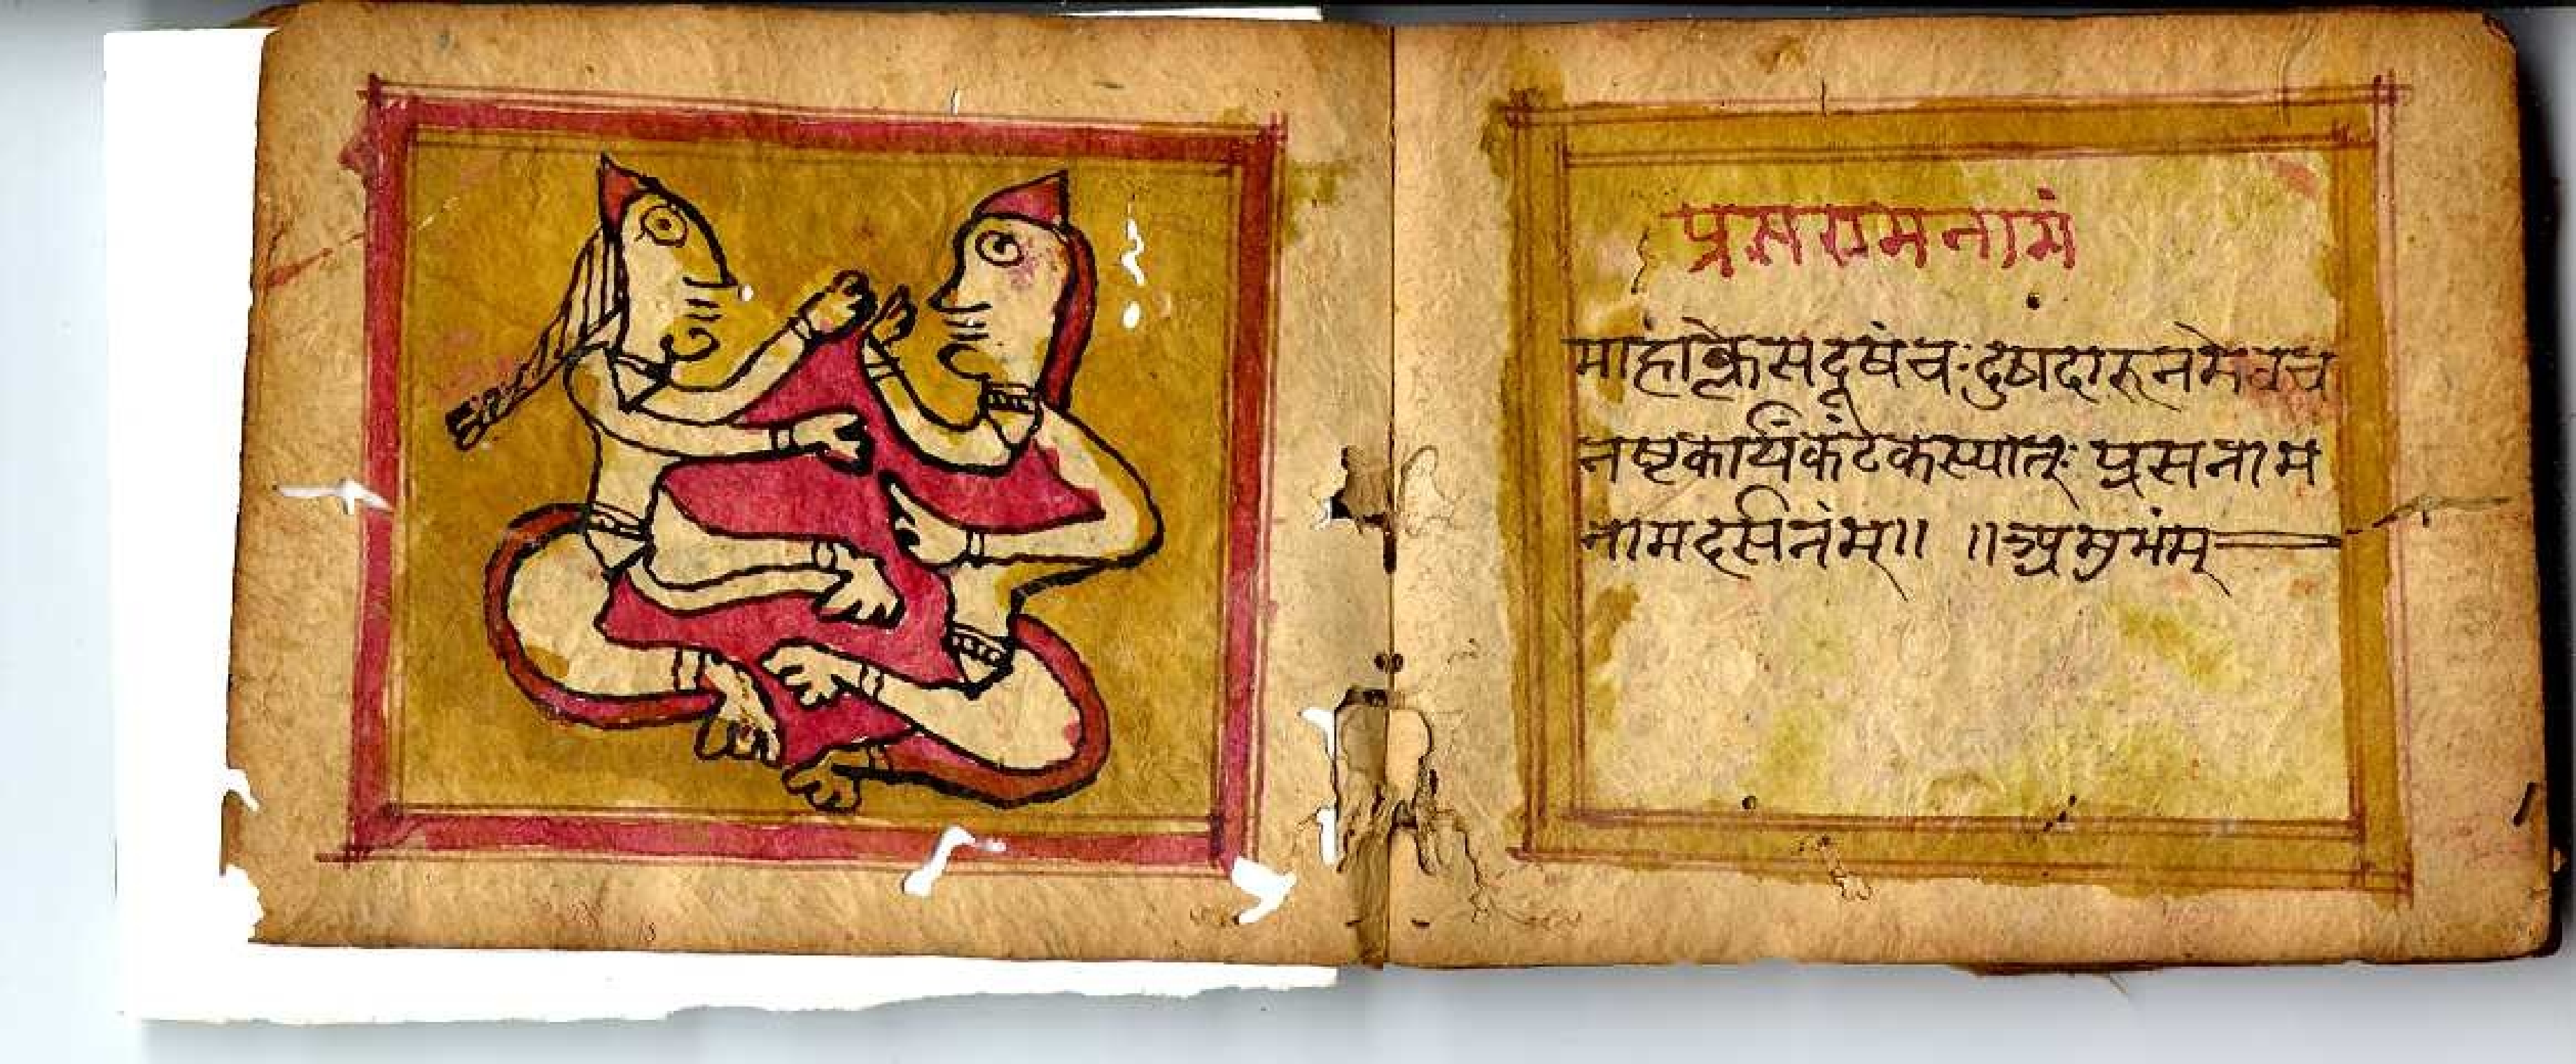 प्रसरामनामं
माहांक्लेसदूषंचःदुष्टदारुनमेवच
नष्टकार्यंकंटकस्यात्ः प्रसनाम
नामदर्सनंम्॥ ॥